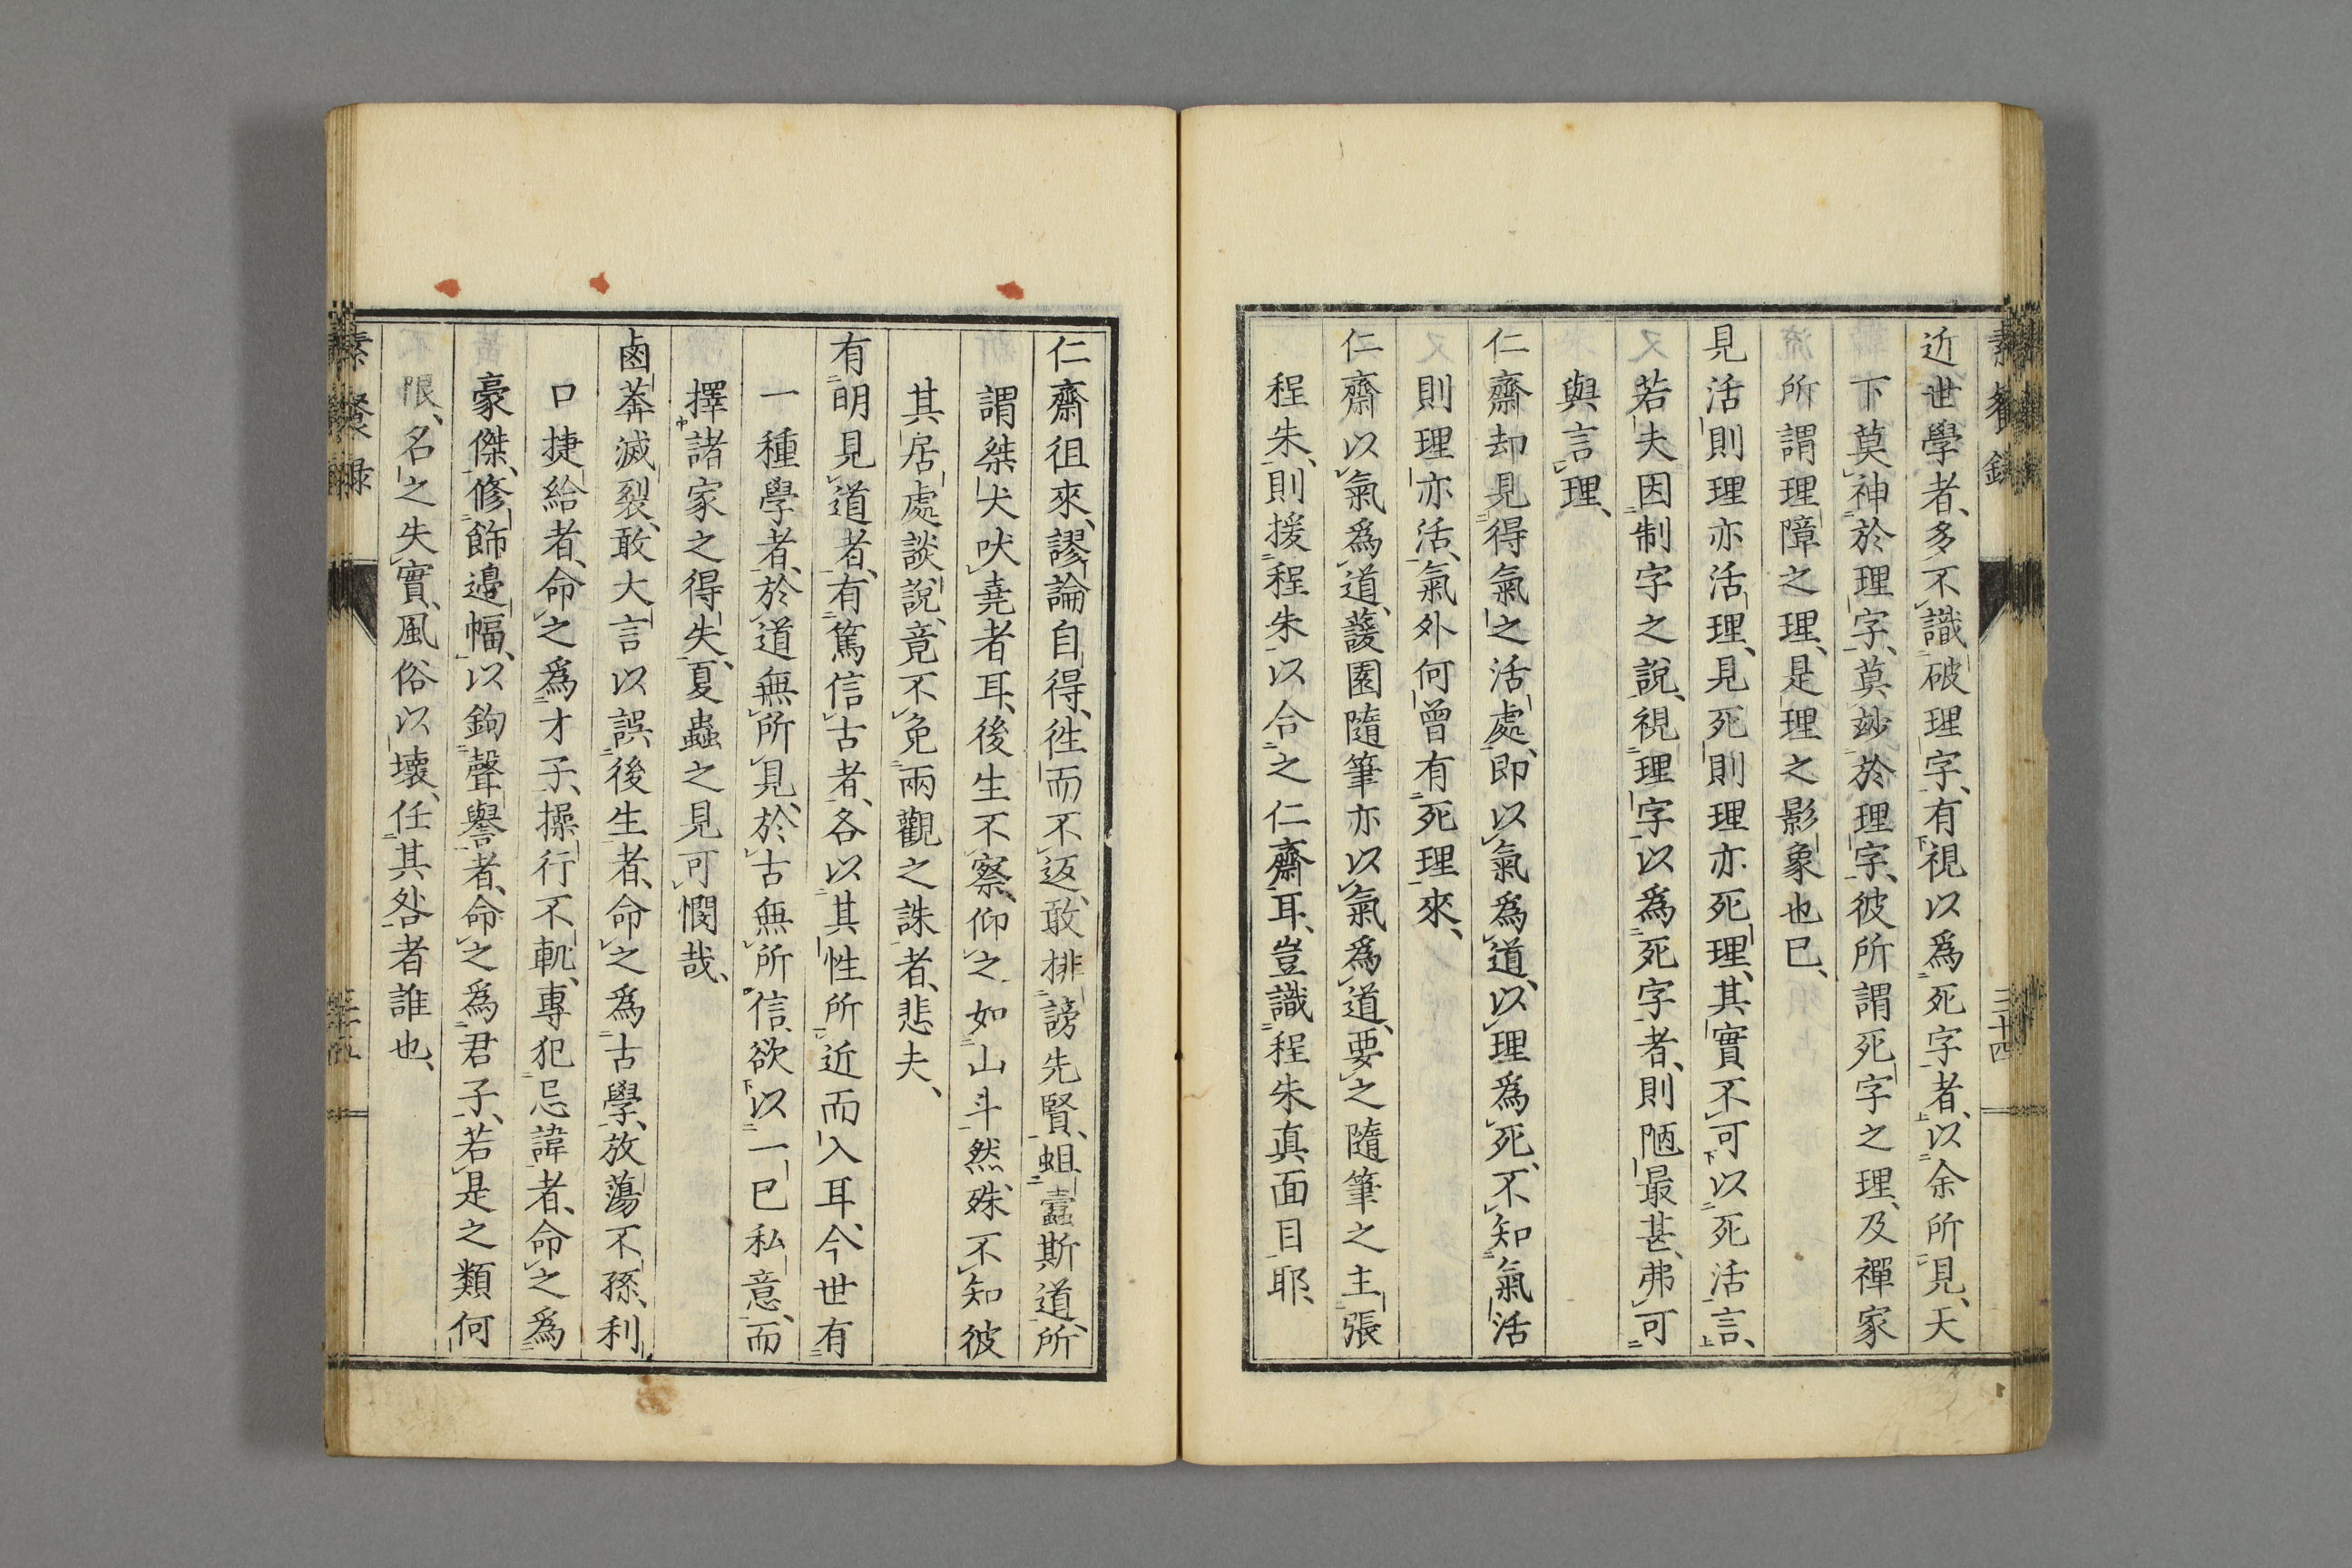 近世學者、多不識破理字、有視以爲死字者、以余所見、天
下莫神於理字、莫玅於理字、彼所謂死字之理、及禪家
所謂理障之理、是理之影象也已、
見活則理亦活理、見死則理亦死理、其實不可以死活言、
若夫因制字之說、視理字以爲死字者、則陋最甚、弗可
與言理、
仁齋却見得氣之活處、即以氣爲道、以理爲死、不知氣活
則理亦活、氣外何曾有死理來、
仁齋以氣爲道、蘐園隨筆亦以氣爲道、要之隨筆之主張
程朱、則援程朱以合之仁齋耳、豈識程朱真面目耶、
三十四
仁齋徂來、謬論自得、徃而不返、敢排謗先賢、蛆蠹斯道、所
謂桀犬吠堯者耳、後生不察、仰之如山斗然、殊不知彼
其居處談說、竟不免兩觀之誅者、悲夫、
有明見道者、有篤信古者、各以其性所近而入耳、今世有
一種學者、於道無所見、於古無所信、欲以一已私意、而
擇諸家之得失、夏蟲之見可憫哉、
鹵莾滅裂、敢大言以誤後生者、命之爲古學、放蕩不孫、利
口捷給者、命之爲才子、操行不軌、專犯忌諱者、命之爲
豪傑、修飾邊幅、以鉤聲譽者、命之爲君子、若是之類何
限、名之失實、風俗以壞、任其咎者誰也、